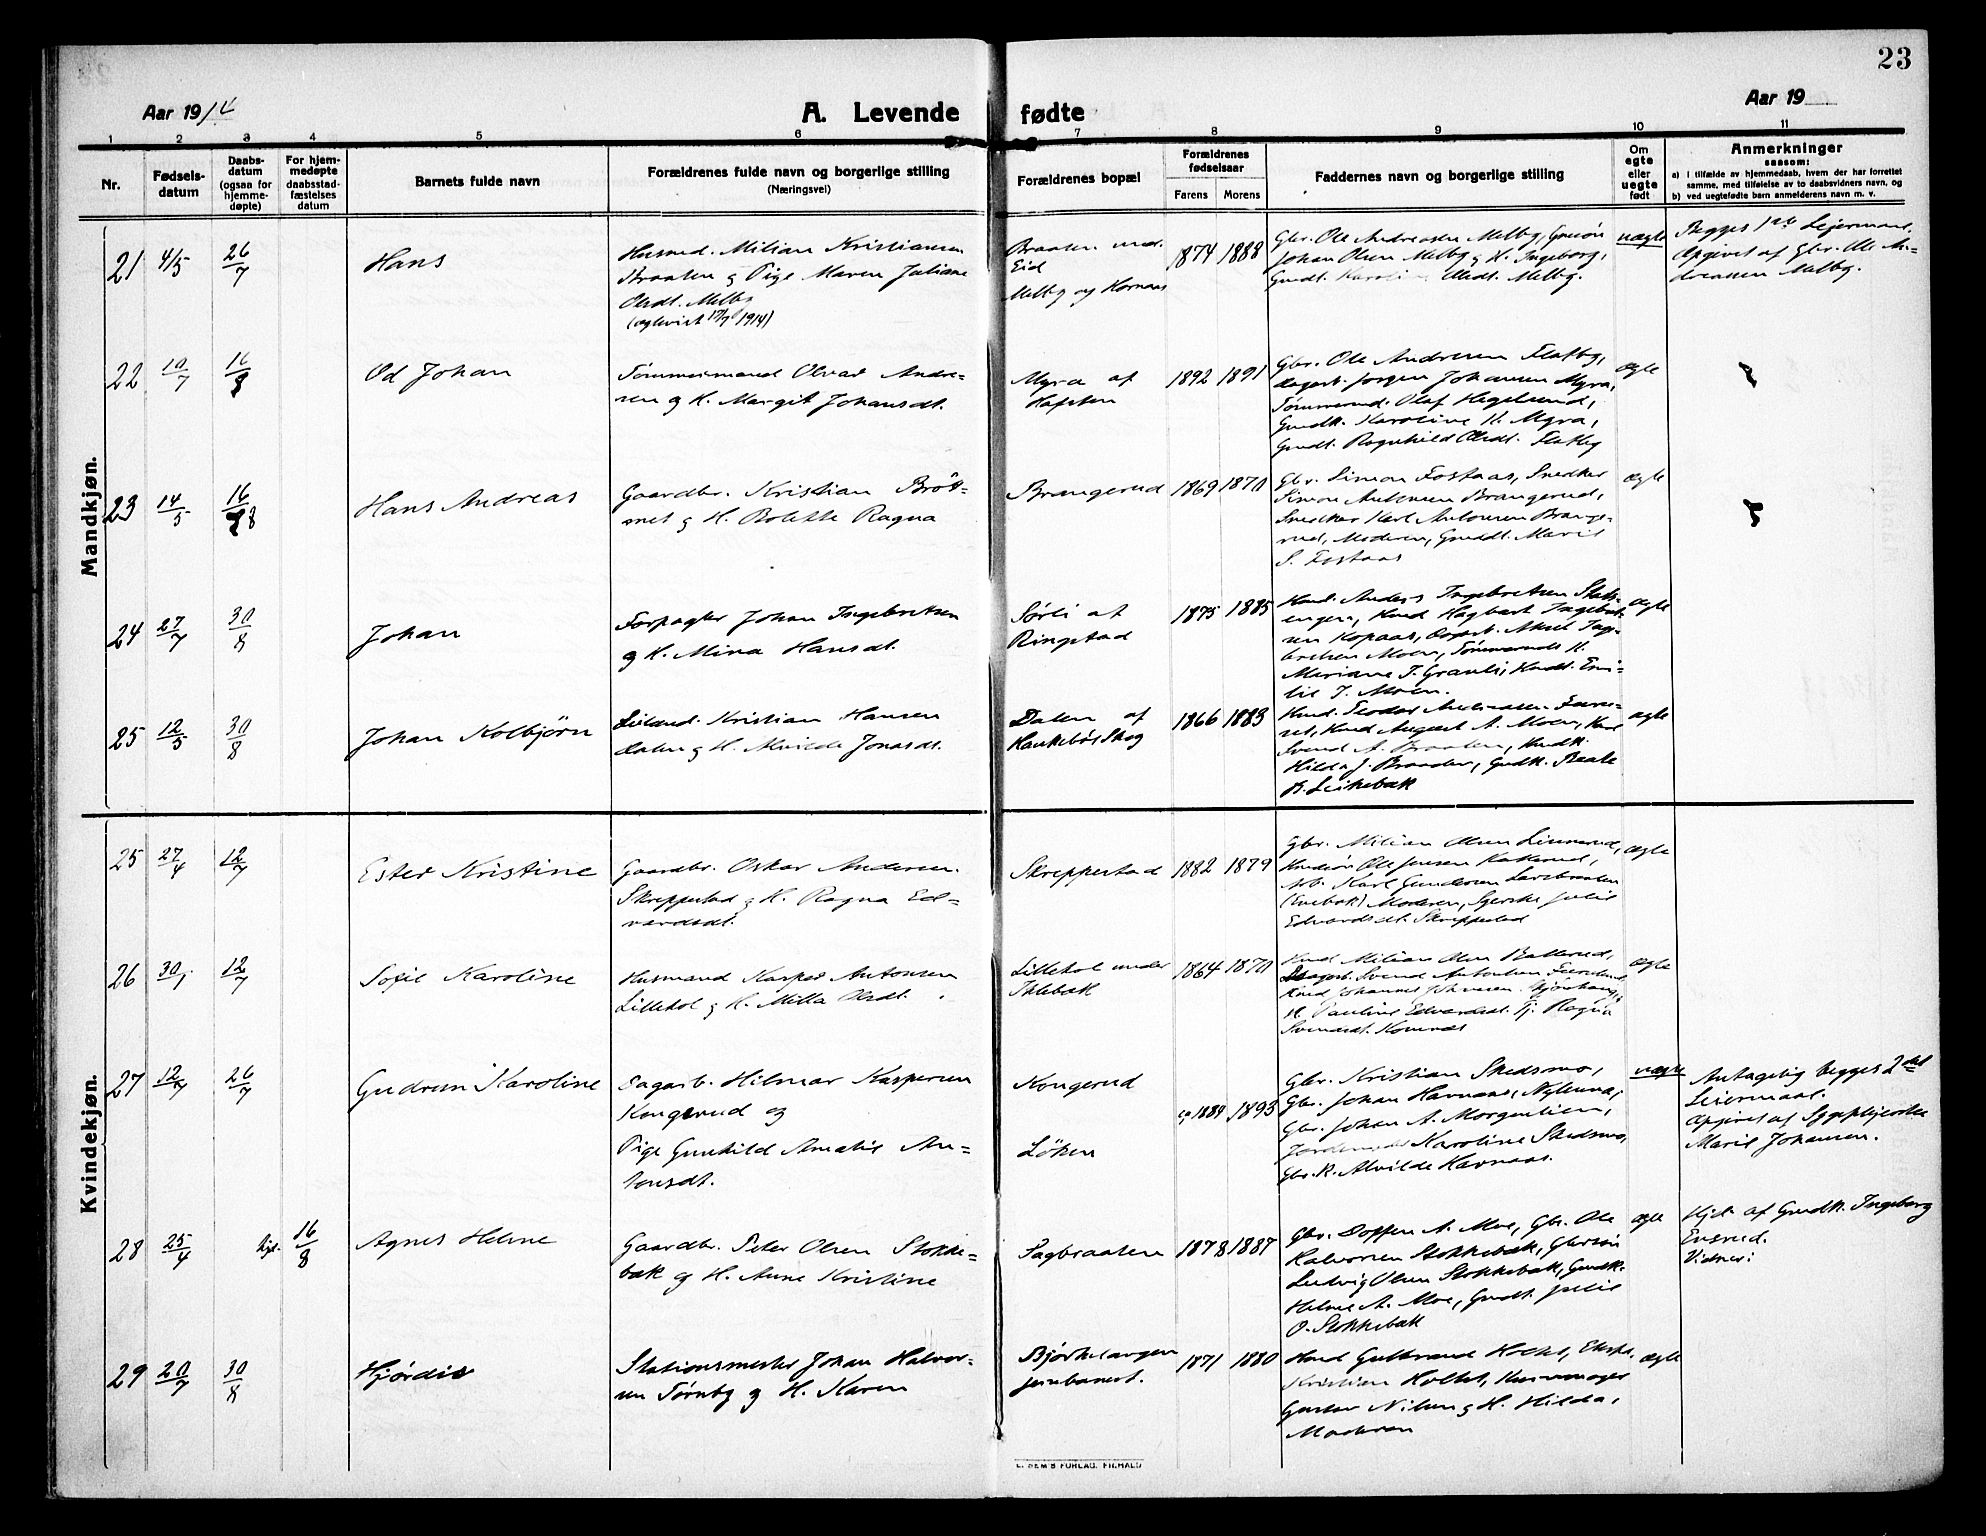 23
Aar 1914
A. Levende fødte
Aar 19
1 2 3 4 5 6 7 8 9 10 11
Nr.
Fødsels-
datum
Daabs-
datum
(ogsaa for
hjemme-
døpte)
For hjem-
medøpte
daabsstad-
fæstelses
datum
Barnets fulde navn
Forældrenes fulde navn og borgerlige stilling
(Næringsvei)
Forældrenes bopæl
Forældrenes
fødselsaar
Farens Morens
Faddernes navn og borgerlige stilling
Om
egte
eller
uegte
født
Anmerkninger
saasom:
a) i tilfælde av hjemmedaab, hvem der har forrettet
samme, med tilføielse av to daabsvidners navn, og
b) ved uegtefødte barn anmelderens navn m. v.
Mandkjøn.
21 4/5 26/7 Hans
Husmd. Milian Kristiansen
Braaten & Pige Maren Juliane
Olsdt. Melby
(egteviet 17/7 1914)
Braaten und.
Eid
Melby og Hornaas
1874 1888
Gbr. Ole Andreasen Melby, Grdsøn
Johan Olsen Melby & H. Ingeborg,
Grdt. Karoline Olsdt. Melby.
uægte
Begges 1ste Lejermaal.
Opgivet af Gbr. Ole An-
dreasen Melby.
22 10/7 16/8 Od Johan
Tømmermand Olvar Andre-
sen & H. Margit Johansdt.
Myra af
Hafsten
1892 1891
Gbr. Ole Andresen Flatby,
Dagarb. Jørgen Johansen Myra,
Tømmermd. Olaf Hegelund,
Grdk. Karoline K. Myra,
Grdt. Ragnhild Olsdt. Flatby
ægte
23 14/5 16/8 Hans Andreas
Gaardbr. Kristian Bröt-
met & H. Bolette Ragna
Brangerud
1869 1870
Gbr. Simon Fostaas, Snedker
Simon Antonsen Brangerud,
Snedker Karl Antonsen Brange-
rud, Moderen, Grddt. Marie
S. Fostaas
ægte
24 27/7 30/8 Johan
Forpagter Johan Ingebretsen
& H. Mina Hansdt.
Sørli af
Ringstad
1875 1885
Hmd. Anders Ingebretsen
Kopaas,
Moen,
Mariane T. Granli, Hmdt. Emi-
lie I. Moen.
ægte
25 12/5 30/8 Johan Kolbjörn
Leiland. Kristian Hansen
Dalen & H. Alvilde Jonasdt.
Dalen af
Haukebøl Skog
1866 1883
Hmd. August A. Moen, Hmd
Svend A. Braaten, Hmdk.
Hilda J. Braaten, Grdk. Beate
ægte
Kvindekjøn.
25 27/4 12/7 Ester Kristine
Gaardbr. Oskar Andersen
Skreppestad & H. Ragna Ed-
vardsdt.
Skreppestad
1882 1879
Gbr. Milian Olsen
Ole Jensen
Arb. Karl Gundersen
Moderen, Julie
Edvardsdt. Skreppestad
ægte
26 30/ 12/7 Sofie Karoline
Husmand Kasper Antonsen
Lillehol & H. Milla Olsdt.
Lillehol under
Ihlebæk
1864 1870
Hmd Milian Olsen
Dagarb. Svend Antonsen
Hmd Johannes Johnsen
H. Pauline Edvardsdt. Tj. Ragna
Svendsdt.
ægte
27 12/7 26/7 Gudrun Karoline
Dagarb. Hilmar Kaspersen
Kongerud og
Pige Gunhild Amalie An-
tonsdt.
Kongerud
Löken
ca 1889 1893
Gbr. Kristian Skedsmo,
Gbr. Johan Havnaas,
Gbr. Johan A. Morgenlien,
Karoline Skedsmo,
Gbr.k. Alvilde Havnaas.
uægte
Antagelig begges 2det
Leiermaal.
Opgivet af Sygepleierske
Marie Johansen.
28 25/4 Hjd. 16/8 Agnes Helene
Gaardbr. Peter Olsen Stokke-
bæk & H. Anne Kristine
Sagbraaten
1878 1887
Gbr. Doffen A. Moe, Gbr. Ole
Halvorsen Stokkebæk, Gbrsøn
Ludvig Olsen Stokkebæk, Grdk.
Helene A. Moe, Grdt. Julie
O. Stokkebæk
ægte
Hjd. af Grdk. Ingeborg
Ensrud.
Vidner:
29 20/7 30/8 Hjørdis
Stationsmester Johan Halvor-
sen Tørnby & H. Karen
Bjørkelangen
jernbanest.
1871 1880
Hmd Gulbrand Holtet, Ekspd.
Kristian Holtet,
Gustav Nilsen & H. Hilda,
Moderen
ægte